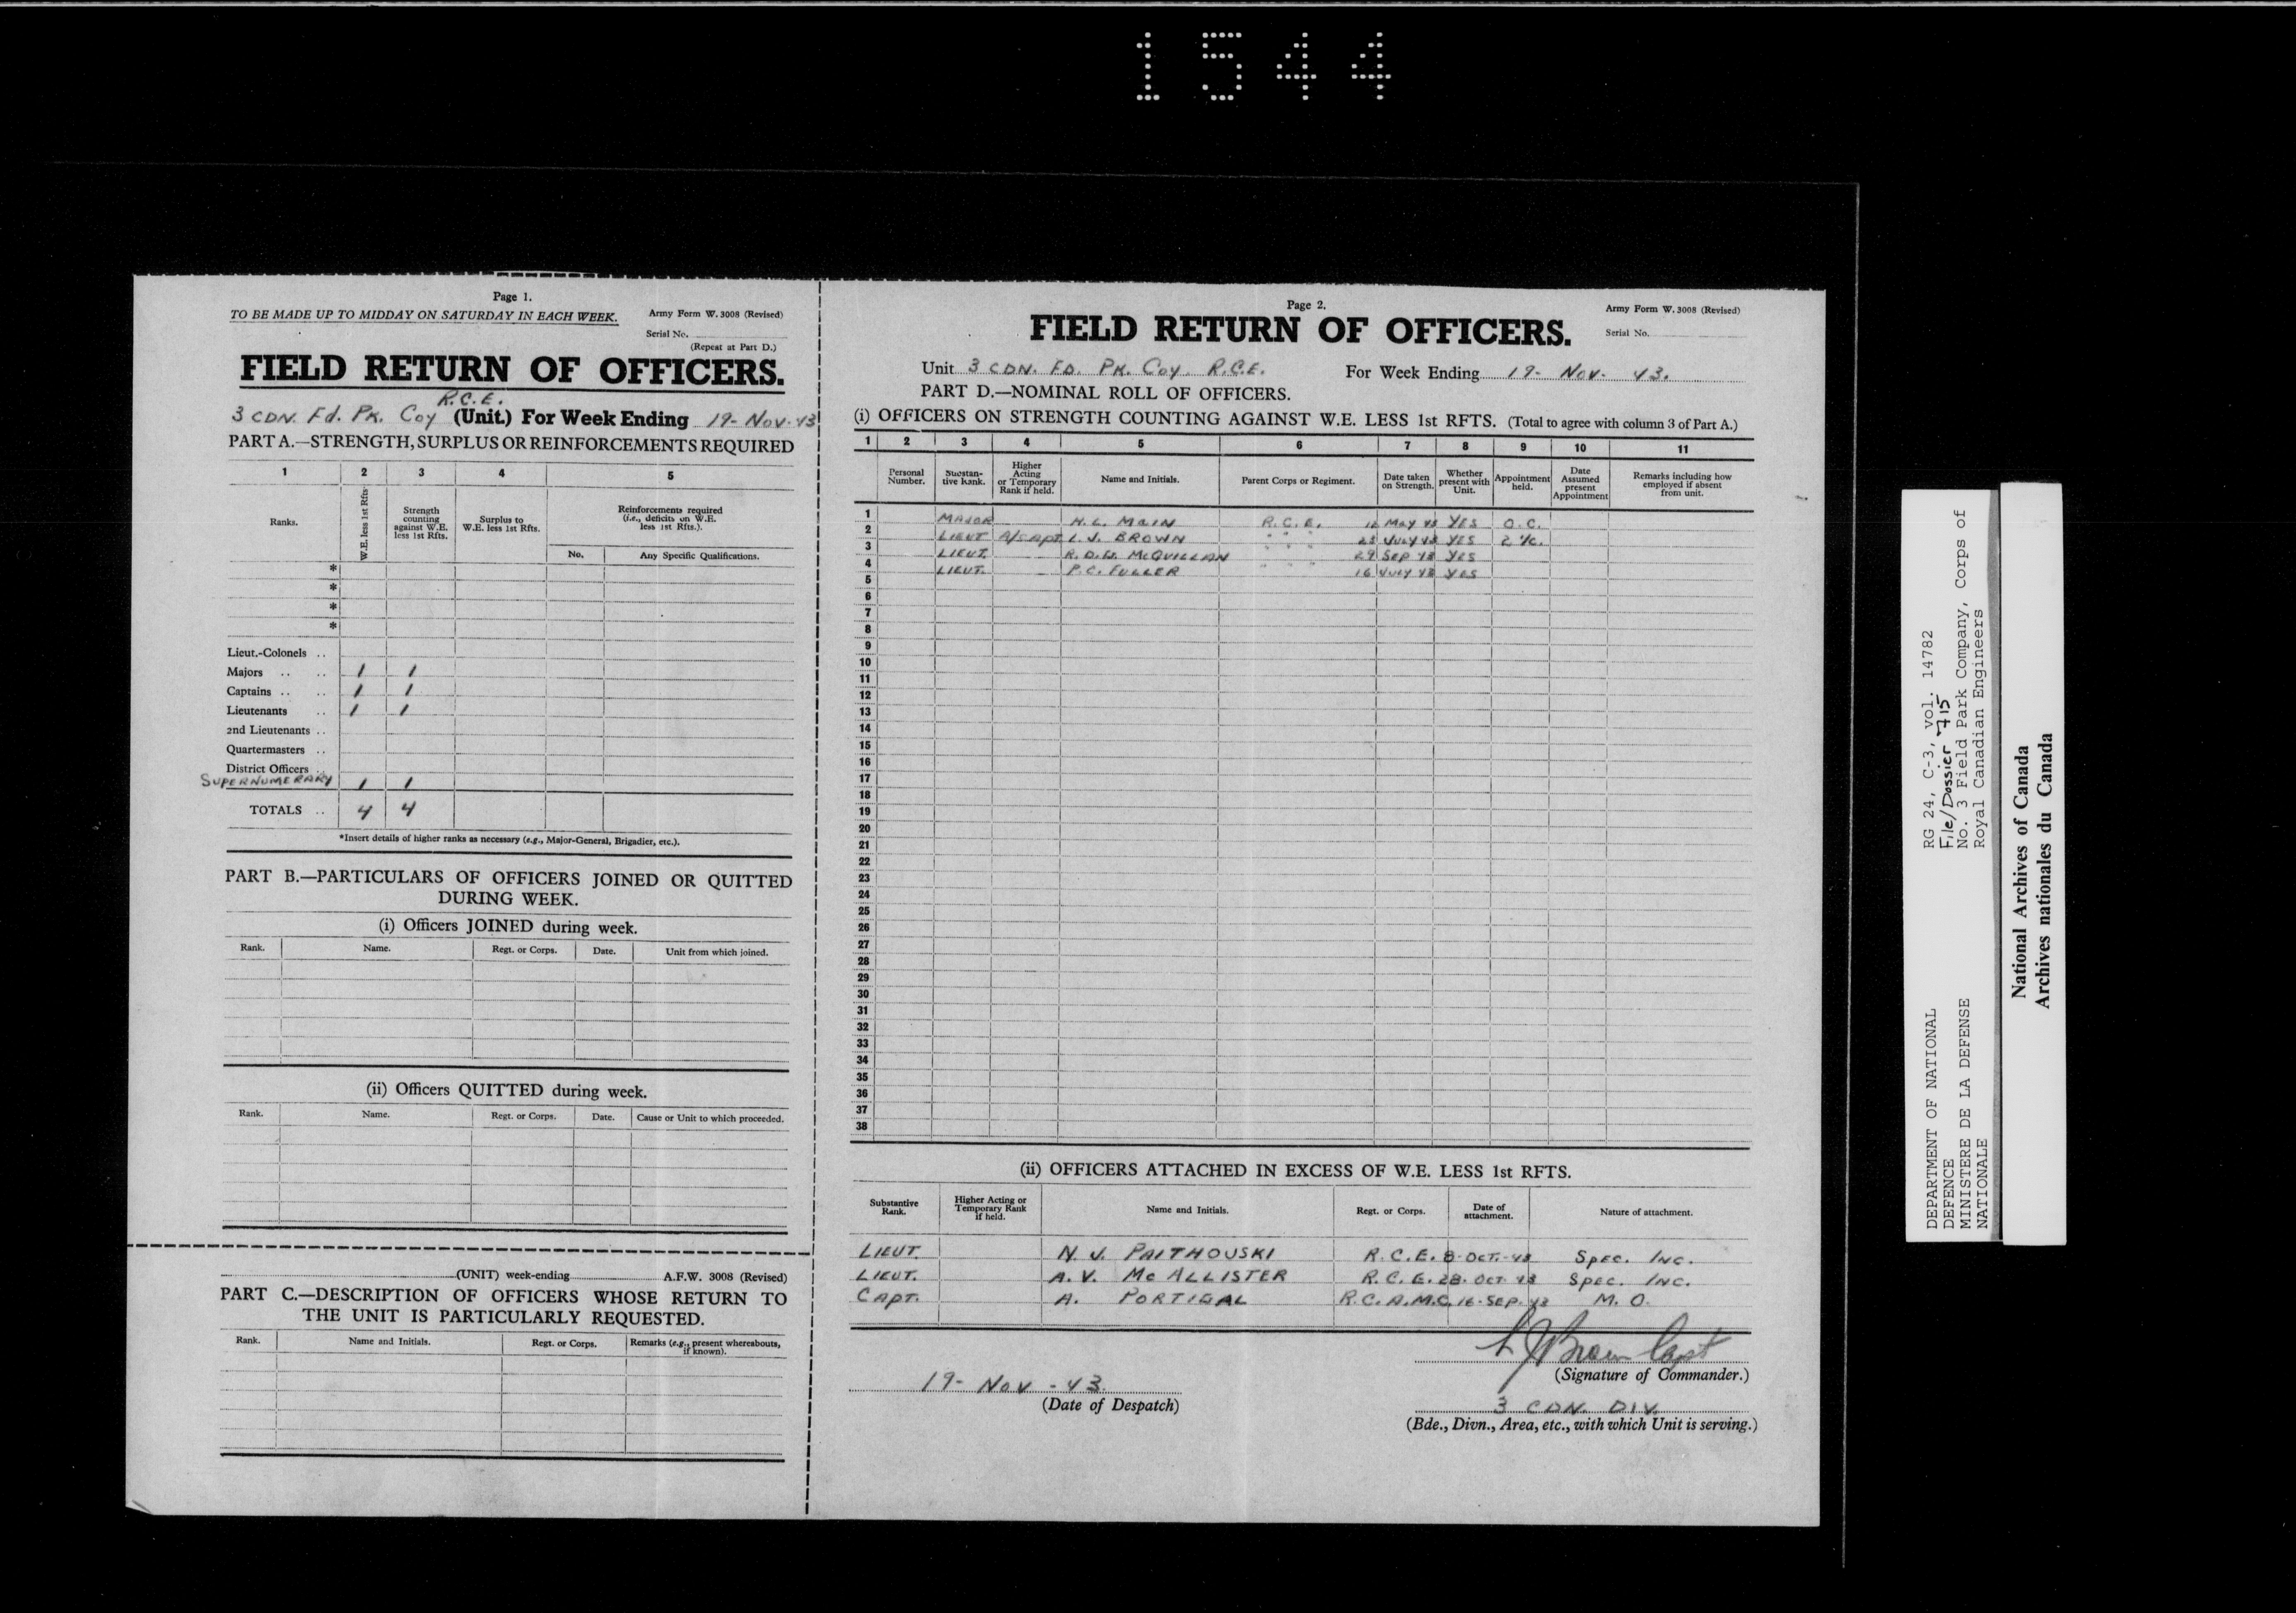 1544
Page 1.
TO BE MADE UP TO MIDDAY ON SATURDAY IN EACH WEEK.
Army Form W. 3008 (Revised)
Serial No.
(Repeat at Part D.)
FIELD RETURN OF OFFICERS.
R.C.E.
3 CDN. Fd. PK. Coy (Unit.) For Week Ending 19- Nov-43
PART A.—STRENGTH, SURPLUS OR REINFORCEMENTS REQUIRED
1 2 3 4 5
Ranks.
W.E. less 1st Rfts
Strength counting against W.E. less 1st Rfts.
Surplus to W.E. less 1st Rfts.
Reinforcements required (i.e., deficits on W.E. less 1st Rfts.).
No. Any Specific Qualifications.
*
*
*
*
Lieut.-Colonels ..
Majors .. .. 1 1
Captains .. .. 1 1
Lieutenants .. 1 1
2nd Lieutenants ..
Quartermasters ..
District Officers ..
SUPERNUMERARY 1 1
TOTALS .. 4 4
*Insert details of higher ranks as necessary (e.g., Major-General, Brigadier, etc.).
PART B.—PARTICULARS OF OFFICERS JOINED OR QUITTED
DURING WEEK.
(i) Officers JOINED during week.
Rank. Name. Regt. or Corps. Date. Unit from which joined.
(ii) Officers QUITTED during week.
Rank. Name. Regt. or Corps. Date. Cause or Unit to which proceeded.
(UNIT) week-ending A.F.W. 3008 (Revised)
PART C.—DESCRIPTION OF OFFICERS WHOSE RETURN TO
THE UNIT IS PARTICULARLY REQUESTED.
Rank. Name and Initials. Regt. or Corps. Remarks (e.g., present whereabouts, if known).
Page 2.
Army Form W. 3008 (Revised)
FIELD RETURN OF OFFICERS.
Serial No.
Unit 3 CDN. FD. PK. COY. R.C.E. For Week Ending 19- Nov- 43.
PART D.—NOMINAL ROLL OF OFFICERS.
(i) OFFICERS ON STRENGTH COUNTING AGAINST W.E. LESS 1st RFTS. (Total to agree with column 3 of Part A.)
1 2 3 4 5 6 7 8 9 10 11
Personal Number.
Substantive Rank.
Higher Acting or Temporary Rank if held.
Name and Initials.
Parent Corps or Regiment.
Date taken on Strength.
Whether present with Unit.
Appointment held.
Date Assumed present Appointment
Remarks including how employed if absent from unit.
1 MAJOR H.L. MAIN R.C.E. MAY 43 YES O.C.
2 LIEUT A/CAPT L.J. BROWN " " " JULY 43 YES 2 i/c.
3 LIEUT. R.D.W. McQUILLAN 29 SEP 43 YES
4 LIEUT. P.C. FULLER " " " 16 JULY 43 YES
5
6
7
8
9
10
11
12
13
14
15
16
17
18
19
20
21
22
23
24
25
26
27
28
29
30
31
32
33
34
35
36
37
38
(ii) OFFICERS ATTACHED IN EXCESS OF W.E. LESS 1st RFTS.
Substantive Rank.
Higher Acting or Temporary Rank if held.
Name and Initials.
Regt. or Corps.
Date of attachment.
Nature of attachment.
LIEUT. N. J. PAITHOUSKI R.C.E. 8-OCT.-43 SPEC. INC.
LIEUT. A. V. McALLISTER R.C.E. 28-OCT-43 SPEC. INC.
CAPT. A. PORTIGAL R.C.A.M.C. 16-SEP.-43 M.O.
L J Brown Capt
(Signature of Commander.)
19- NOV -43
(Date of Despatch)
3 CDN. DIV.
(Bde., Divn., Area, etc., with which Unit is serving.)
DEPARTMENT OF NATIONAL
DEFENCE
MINISTERE DE LA DEFENSE
NATIONALE
RG 24, C-3, vol. 14782
File/Dossier 715
No. 3 Field Park Company, Corps of
Royal Canadian Engineers
National Archives of Canada
Archives nationales du Canada